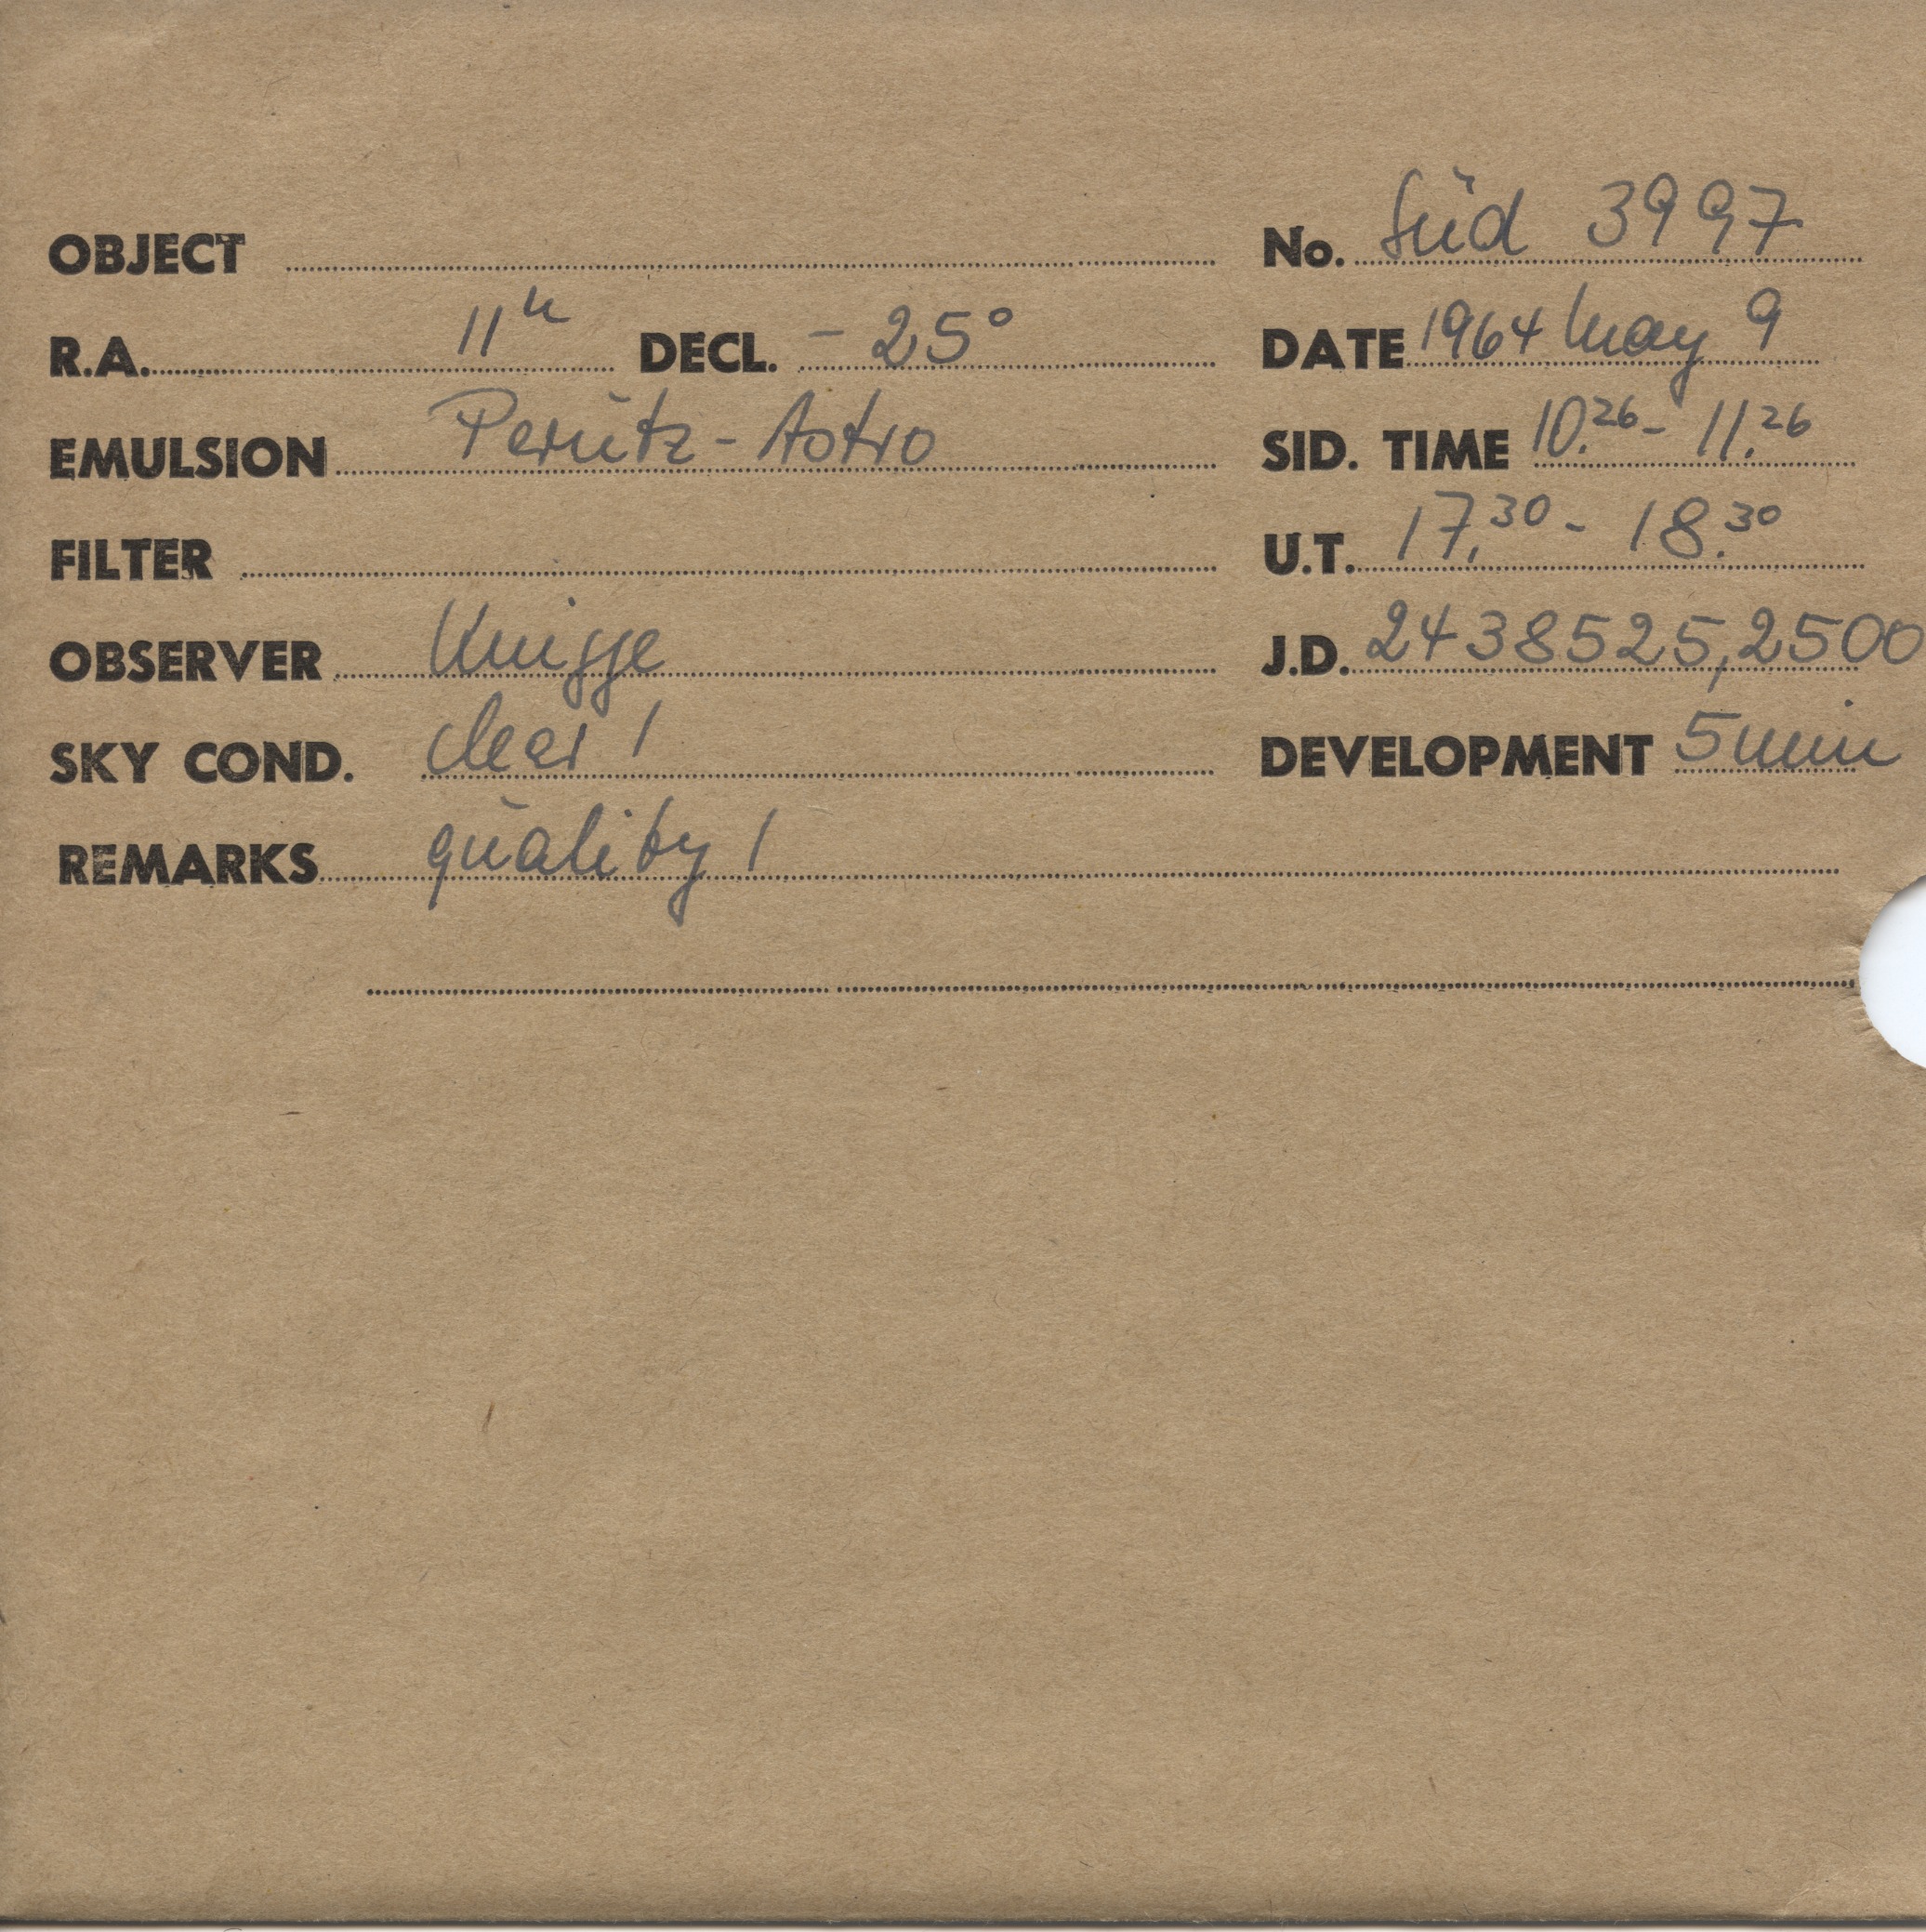 OBJECT No. Süd 3997
R.A. 11h DECL. - 25° DATE 1964 May 9
EMULSION Perutz - Astro SID. TIME 10.26 - 11.26
FILTER U.T. 17.30 - 18.30
OBSERVER Knigge J.D. 2438525,2500
SKY COND. clear 1 DEVELOPMENT 5 min
REMARKS quality 1